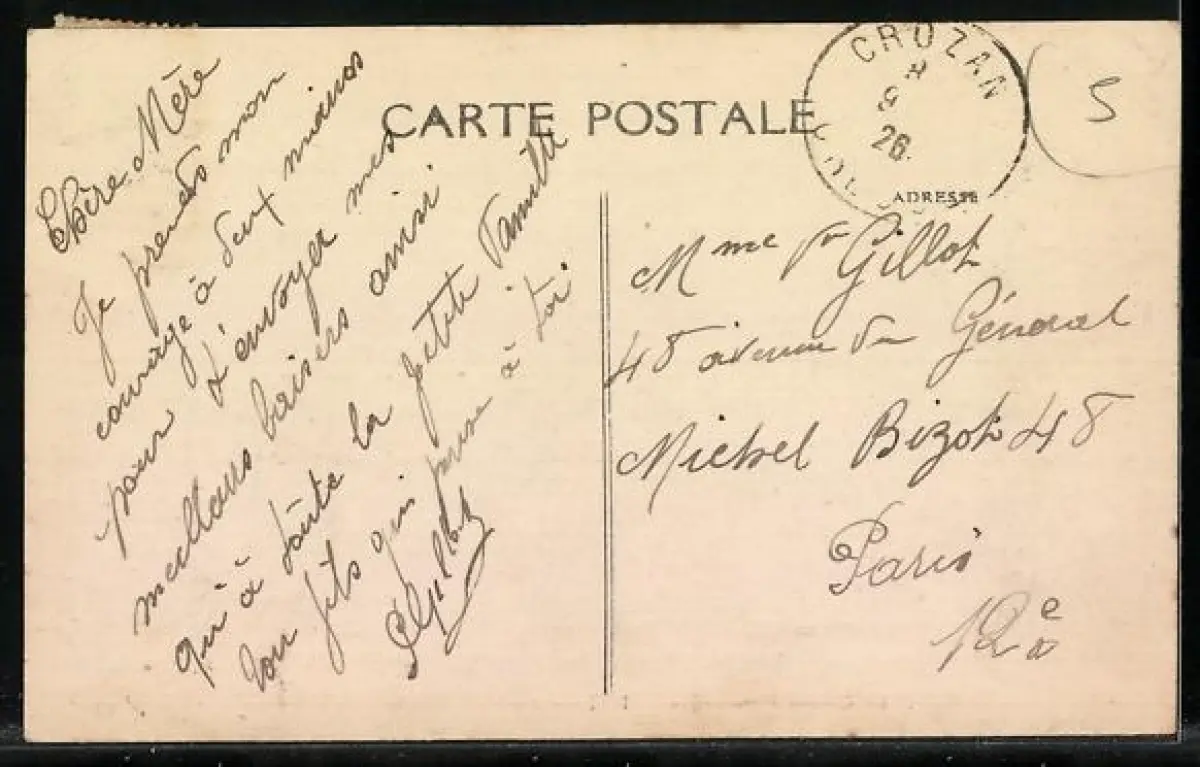 CARTE POSTALE
CROZAN
9
26
S
ADRESSE
Chère Mère
Je prends mon
courage à deux mains
pour t'envoyer mes
meilleurs baisers ainsi
qu'à toute la petite famille
ton fils qui pense à toi.
Mme Vve Gillot
48 avenue du Général
Michel Bizot 48
Paris
12e